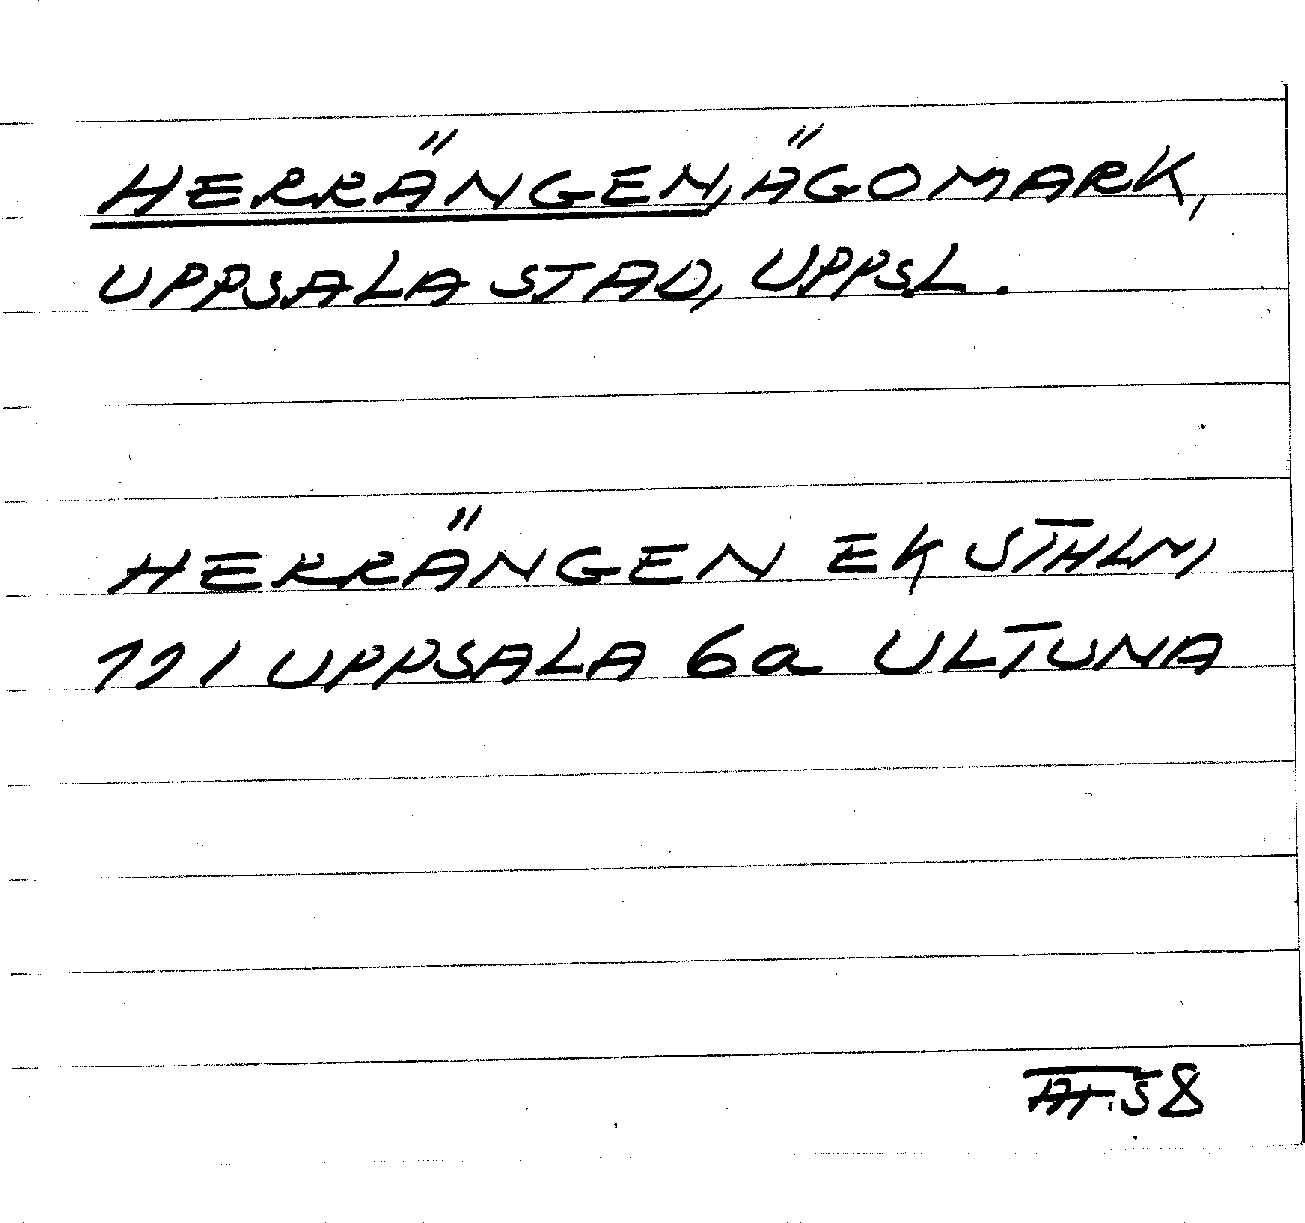 HERRÄNGEN, ÄGOMARK,
UPPSALA STAD, UPPSL.
HERRÄNGEN EK STHLM,
111 UPPSALA 6a ULTUNA
58